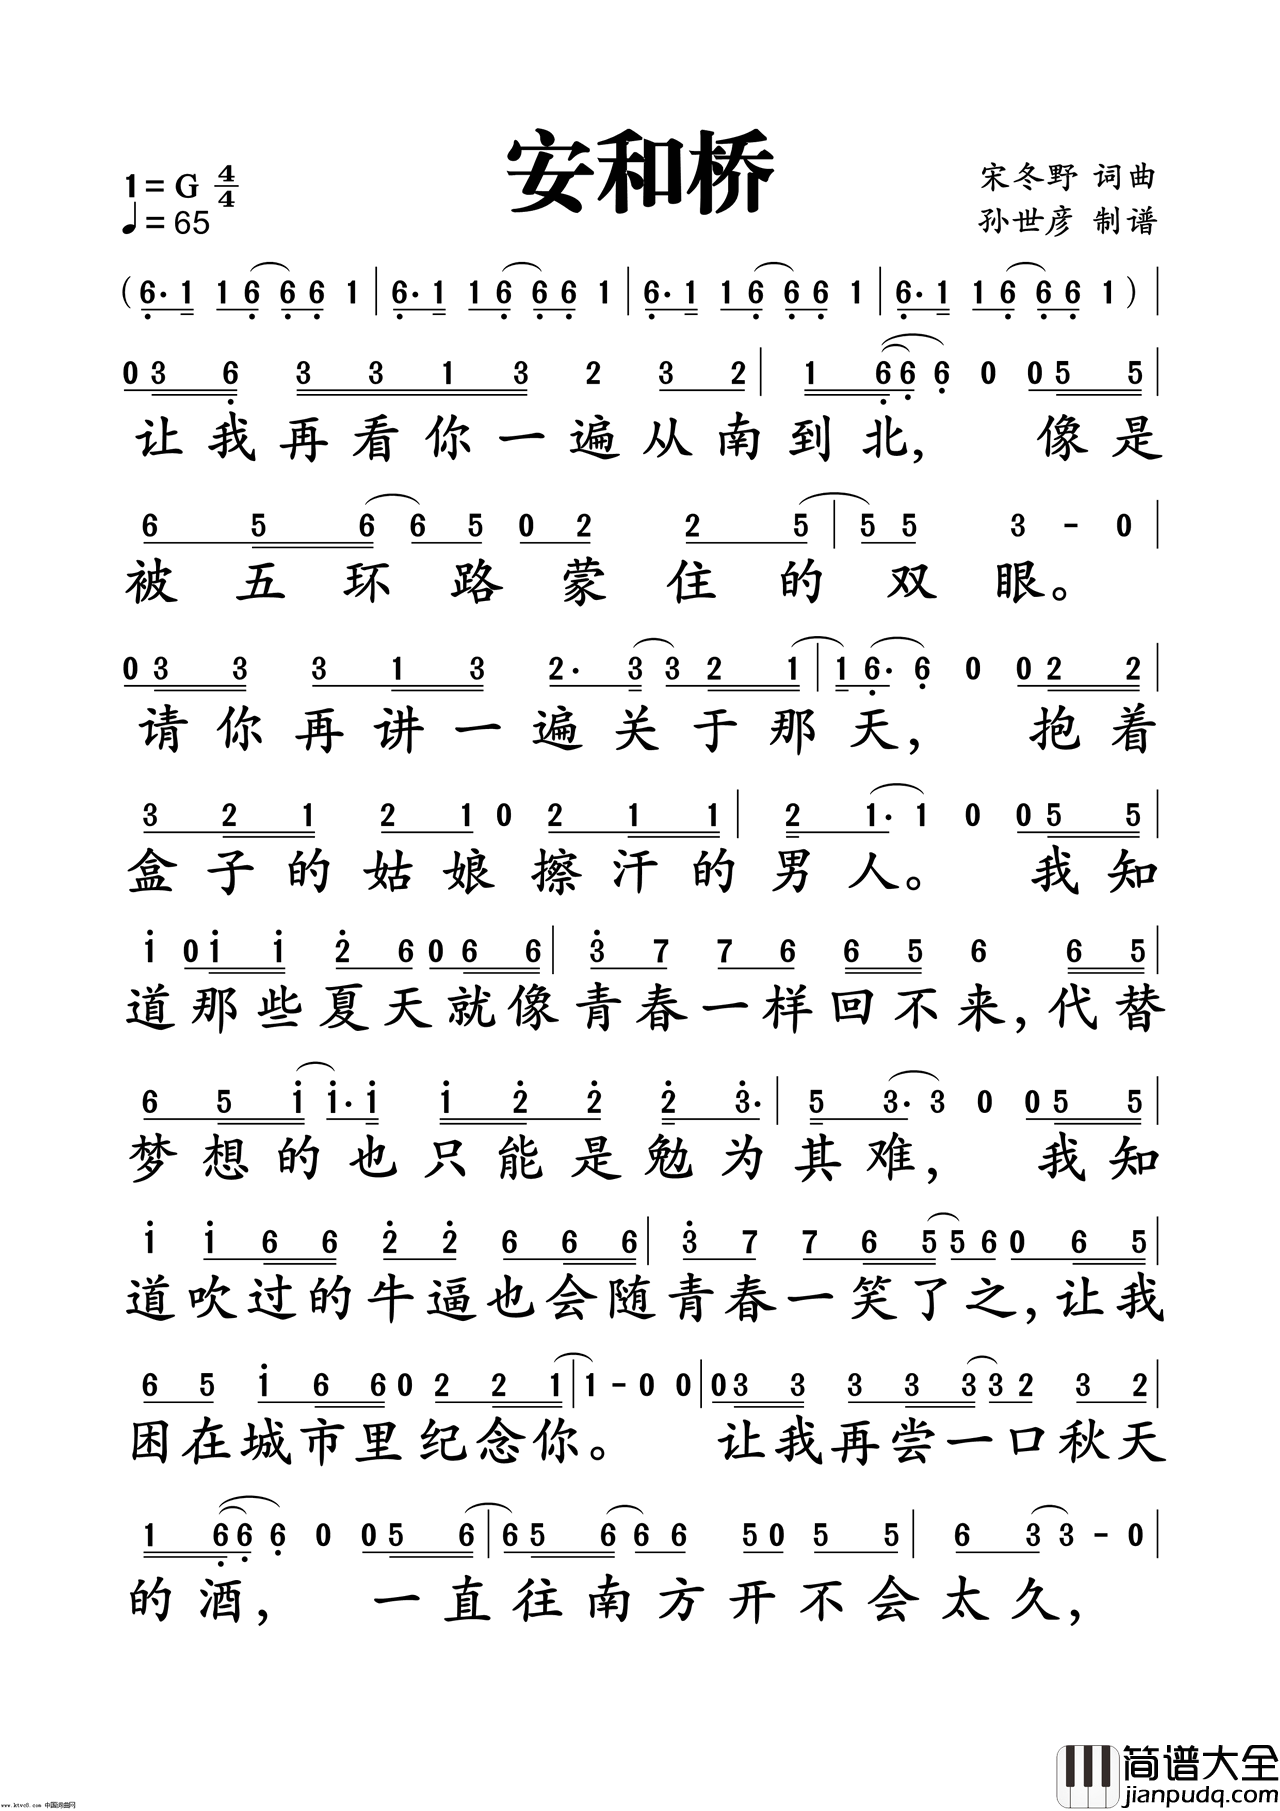 安和桥
1=G 4/4
♩=65
宋冬野 词曲
孙世彦 制谱
(6·1 16 66 1|6·1 16 66 1|6·1 16 66 1|6·1 16 66 1)|
03 6 3 3 1 3 2 3 2|1 66 6 0 05 5|
让我再看你一遍从南到北，像是
6 5 6 6 5 0 2 2 5|5 5 3 - 0|
被五环路蒙住的双眼。
03 3 3 1 3 2· 3 3 2 1|1 6· 6 0 02 2|
请你再讲一遍关于那天，抱着
3 2 1 2 1 0 2 1 1|2 1· 1 0 05 5|
盒子的姑娘擦汗的男人。我知
1 01 1 2 6 06 6|3 7 7 6 6 5 6 6 5|
道那些夏天就像青春一样回不来,代替
6 5 1 1·1 1 2 2 2 3·|5 3·3 0 05 5|
梦想的也只能是勉为其难，我知
1 1 6 6 2 2 6 6 6|3 7 7 6 5 5 6 0 6 5|
道吹过的牛逼也会随青春一笑了之,让我
6 5 1 6 6 0 2 2 1|1 - 0 0|03 3 3 3 3 3 2 3 2|
困在城市里纪念你。让我再尝一口秋天
1 66 6 0 05 6|65 6 6 6 50 5 5|6 3 3 - 0|
的酒，一直往南方开不会太久，
www.ktvc8.com 中国词曲网
简谱大全
jianpudq.com